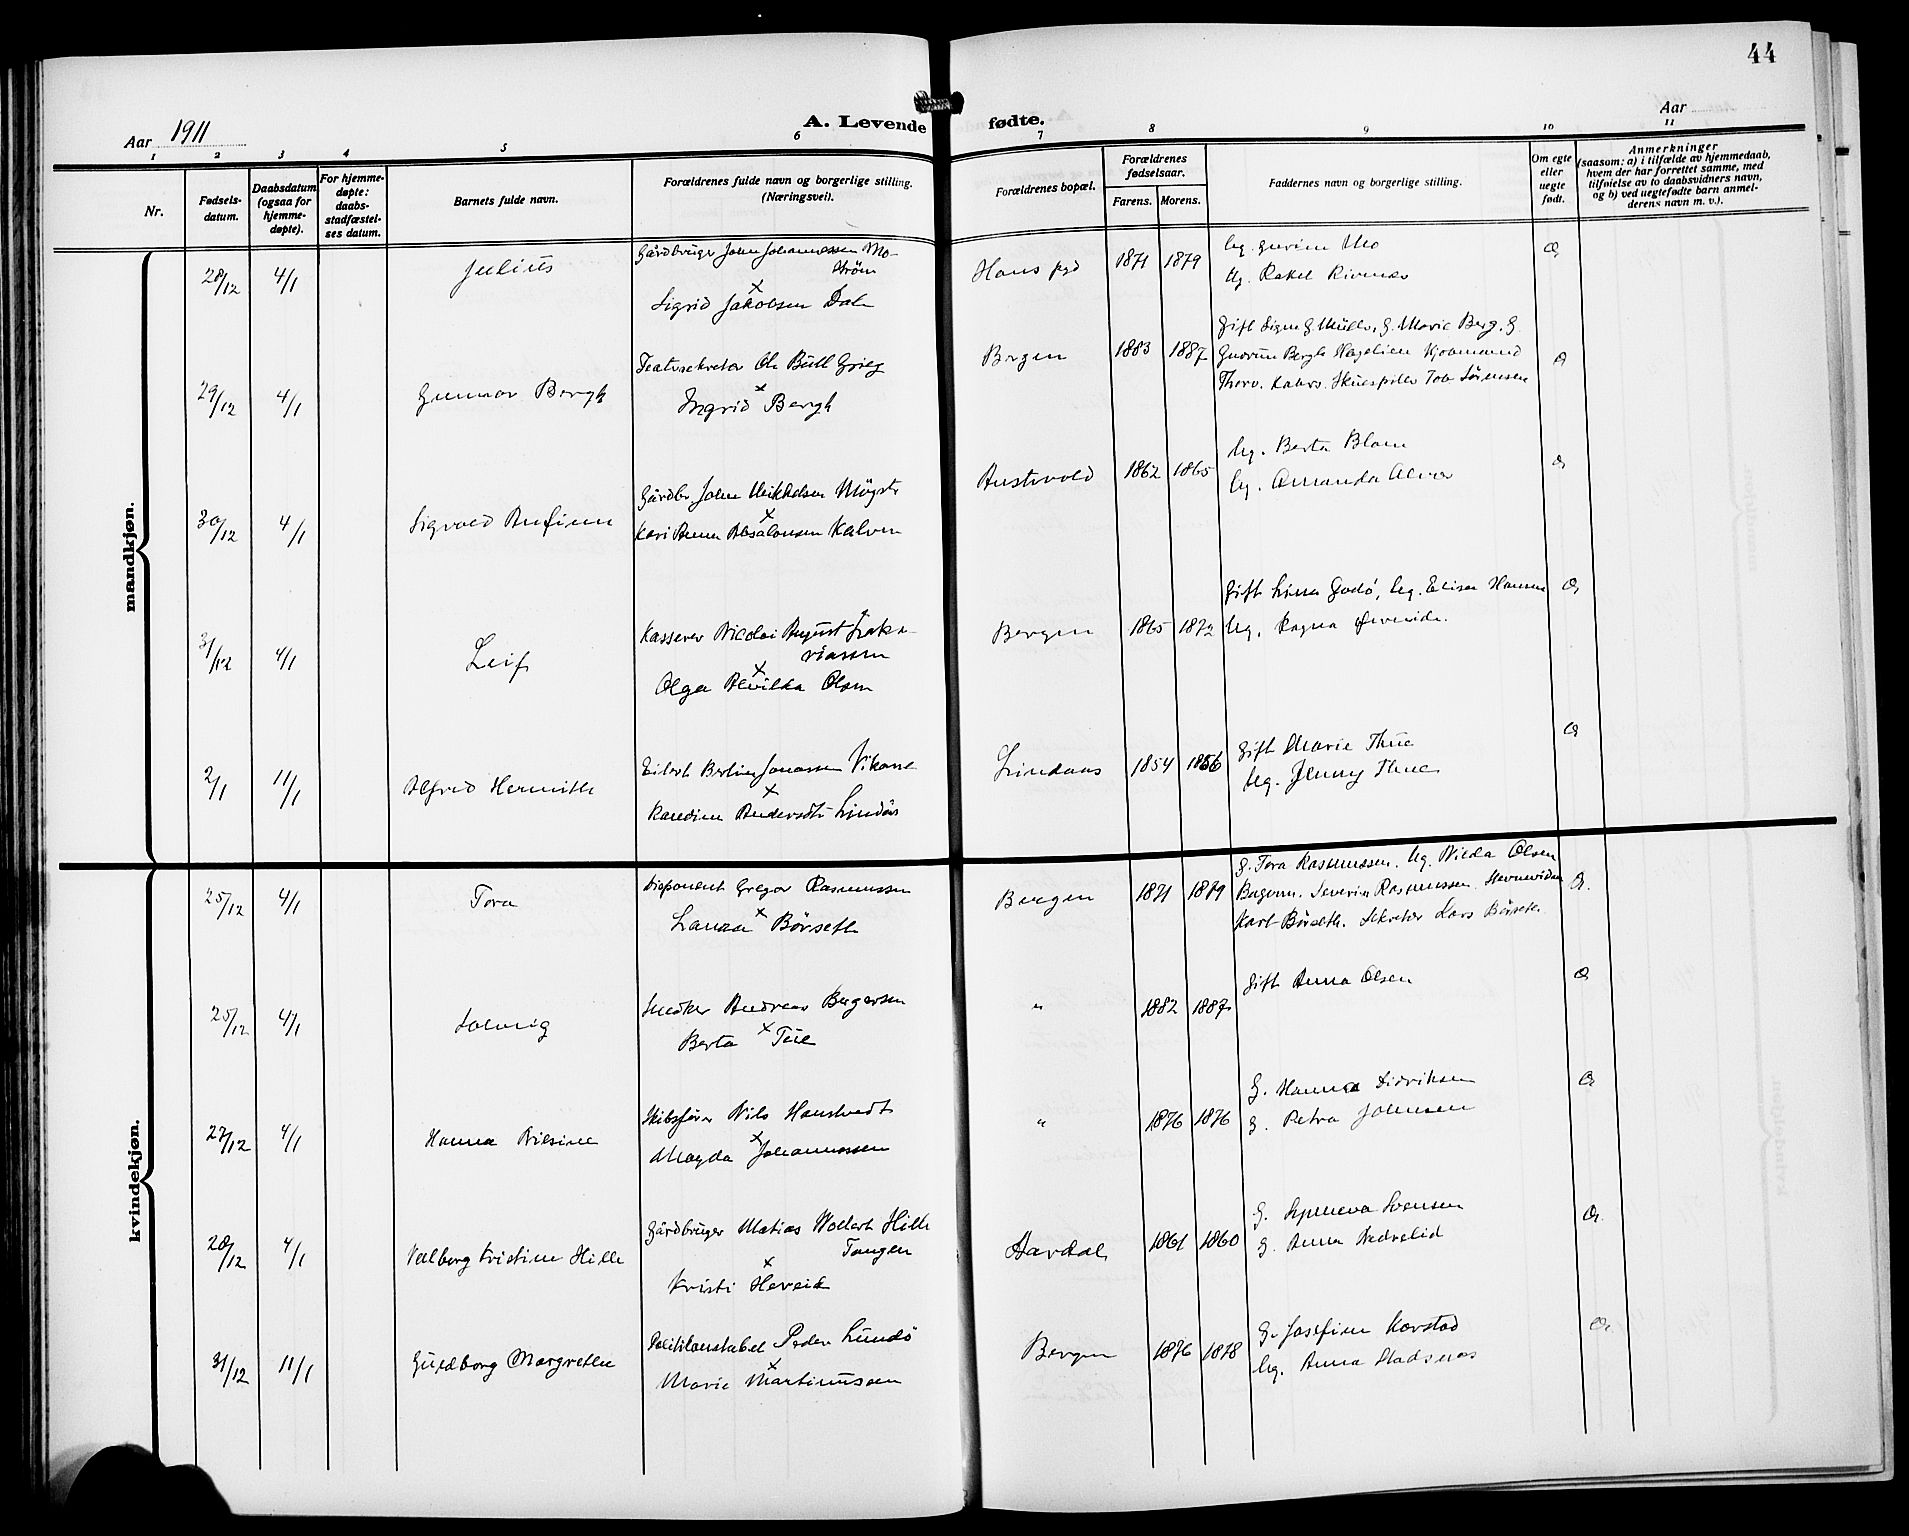 44
Aar 1911
A. Levende fødte.
Aar
1 2 3 4 5 6 7 8 9 10 11
Nr.
Fødsels-
datum.
Daabsdatum
(ogsaa for
hjemme-
døpte).
For hjemme-
døpte:
daabs-
stadfæstel-
ses datum.
Barnets fulde navn.
Forældrenes fulde navn og borgerlige stilling.
(Næringsvei).
Forældrenes bopæl.
Forældrenes
fødselsaar.
Farens. Morens.
Faddernes navn og borgerlige stilling.
Om egte
eller
uegte
født.
Anmerkninger
(saasom: a) i tilfælde av hjemmedaab,
hvem der har forrettet samme, med
tilføielse av to daabsvidners navn,
og b) ved uegtefødte barn anmel-
derens navn m. v.).
mandkjøn.
28/12 4/1 Julius
Gårdbruger John Johannessen Mo-
ström
x
Sigrid Jakobsen Dale
1871 1879
Ug. Mo
Ug. Rakel Rivenes
29/12 4/1 Gunnar Bergh
Teatersekretær Ole Bull Grieg
x
Ingrid Bergh
Brgen 1883 1887
Gift Signe G. Müller, G. Marie Berg, G.
Gudrun Bergh Kjöbmand
Skuespiller Sörensen
30/12 4/1 Sigvald Anfinn
Gårdbr John Mikkelsen Mögst
x
Kari Anna Absalonsen Kalven
Austevold 1862 1865
Ug. Berta Blom
Ug. Amanda Alver
31/12 4/1 Leif
Kasserer Nicolai August Zaka-
riassen
x
Olga Alvilda Olsen
Bergen 1865 1872
Gift Lina Godö, Ug. Elisa Hansen
Ug. Ragna
2/1 11/1 Alfred Hermith
Eilert Berlin Jonassen Vikane
x
Karedine Andersdtr Lindås
Lindaas 1854 1866
Gift Marie Thue
Ug. Jenny Thue
kvindekjøn.
25/12 4/1 Tora
Disponent Gregor Rasmussen
x
Laura Börseth
Bergen 1871 1879
G. Tora Rasmussen, Ug. Nilda Olsen
Severin Rasmussen.
Karl Börseth. Sekretær Lars Börseth
25/12 4/1 Solveig
Snedker Andreas Birgersen
x
Berta Tue
" 1882 1887
Gift Anna Olsen
27/12 4/1 Hanna Nilsine
Skibsfører Nils Hanstvedt
x
Magda Johannessen
" 1876 1876
G. Hanna Didriksen
G. Petra Johnsen
28/12 4/1 Valborg Kristine Hille
Gårdbruger Matias Wollert Hille
Tangen
x
Kristi Hereid
Aardal 1861 1860
G. Synneva Svensen
G. Anna Nedrelid
31/12 11/1 Guldborg Margrethe
Politikonstabel Peder Lundö
x
Marie Martinussen
Bergen 1876 1878
G. Josefine Korstad
Ug. Anna Stadsnes